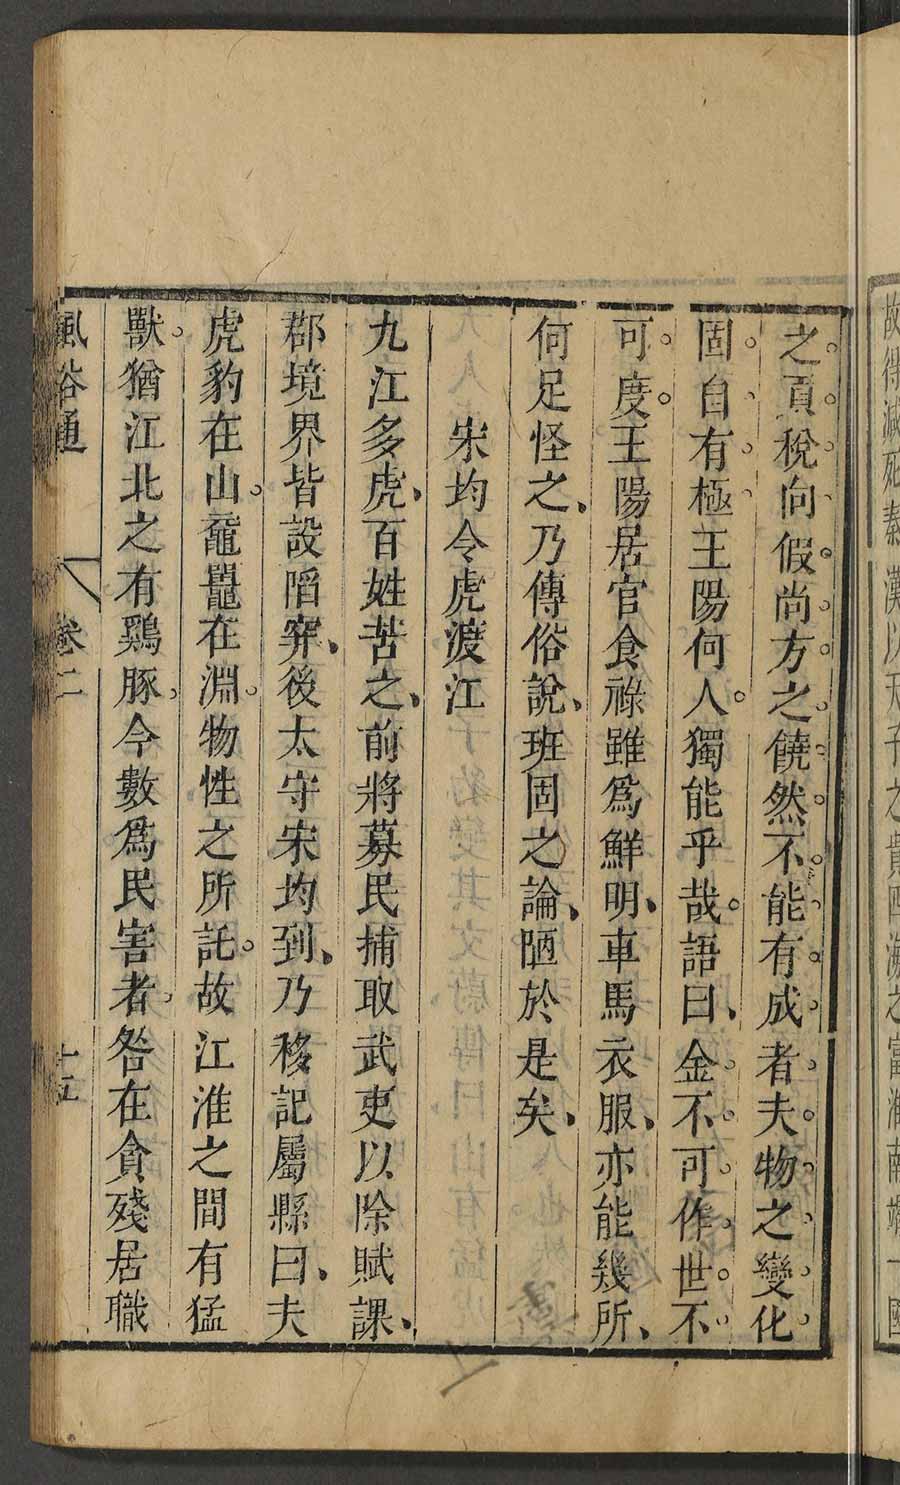 故得減死秦漢以天子之貴四海之富淮南竭一國
之貢稅向假尚方之饒然不能有成者夫物之變化
固自有極王陽何人獨能乎哉語曰金不可作世不
可度王陽居官食祿雖爲鮮明車馬衣服亦能幾所
何足怪之乃傳俗說班固之論陋於是矣
宋均令虎渡江
九江多虎百姓苦之前將募民捕取武吏以除賦課
郡境界皆設陷穽後太守宋均到乃移記屬縣曰夫
虎豹在山黿鼉在淵物性之所託故江淮之間有猛
獸猶江北之有鷄豚今數爲民害者咎在貪殘居職
風俗通 卷二 十五